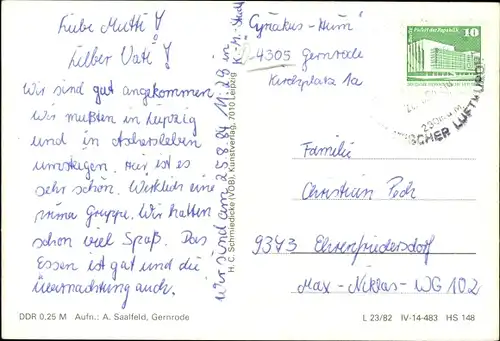 Liebe Mutti!
Lieber Vati!
Wir sind gut angekommen.
Wir mußten in Leipzig
und in Aschersleben
umsteigen. Hier ist es
sehr schön. Wirklich eine
prima Gruppe. Wir hatten
schon viel Spaß. Das
Essen ist gut und die
Übernachtung auch.
Wir sind am 25.8.84 11.29 in
K.-M.-Stadt
H. C. Schmiedicke (VOB), Kunstverlag, 7010 Leipzig
"Cyriakus-Heim"
4305 Gernrode
Kirchplatz 1a
10
Familie
Christian Pech
9373 Ehrenfriedersdorf
Max-Niklas-WG 102
DDR 0.25 M Aufn.: A. Saalfeld, Gernrode
L 23/82 IV-14-483 HS 148